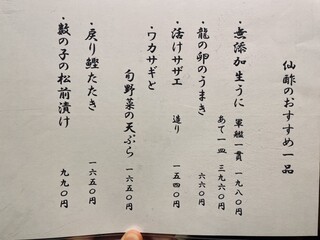 仙酢のおすすめ一品
・無添加生うに 軍艦一貫 一九八〇円
あて一皿 三九六〇円
・龍の卵のうまき 六六〇円
・活けサザエ 造り 一五四〇円
・ワカサギと
旬野菜の天ぷら 一六五〇円
・戻り鰹たたき 一六五〇円
・数の子の松前漬け 九九〇円